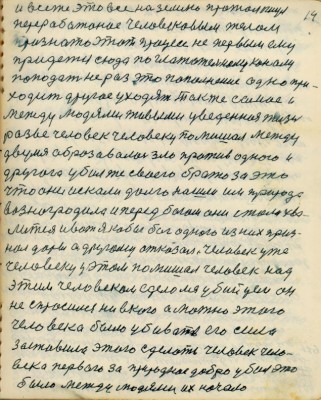 и все же это все на земно протолкнул
переработаное человековым телом
признато этот процес не первый ему
придется сюда по глотательному каналу
попадат не раз это пополнение одно при-
ходит другое уходят также самое и
между людями живыми уведенная жизн
разве человек человеку помишал между
двумя образавалос зло против одного и
другого убил те своего брата за это
что они искали долго нашли их природа
вазноградила и перед богом они стали хва-
лится и вот якобы бог одного из них приз-
нал дары а другому отказал, человек уже
человеку у этом помишал человек над
этим человеком сделал убийцею он
не спросился ни в кого а можно этого
человека было убиват его сила
заставила этого сделат человек чело-
века первого за природное добро убил это
было между людями их начало
14.